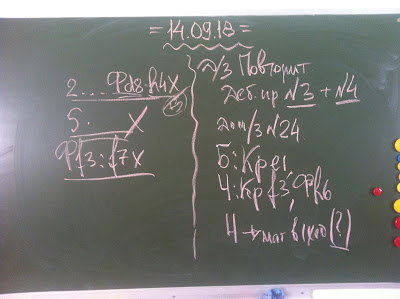 = 14.09.18 =
2 ... Фd8-h4X
5. X
Фf3:f7X
Д/З Повторит.
Деб. пр N3 + N4
дом/з N24.
Б: Крe1
Ч: Крf3, Фh6
Ч → мат в 1 ход (?)